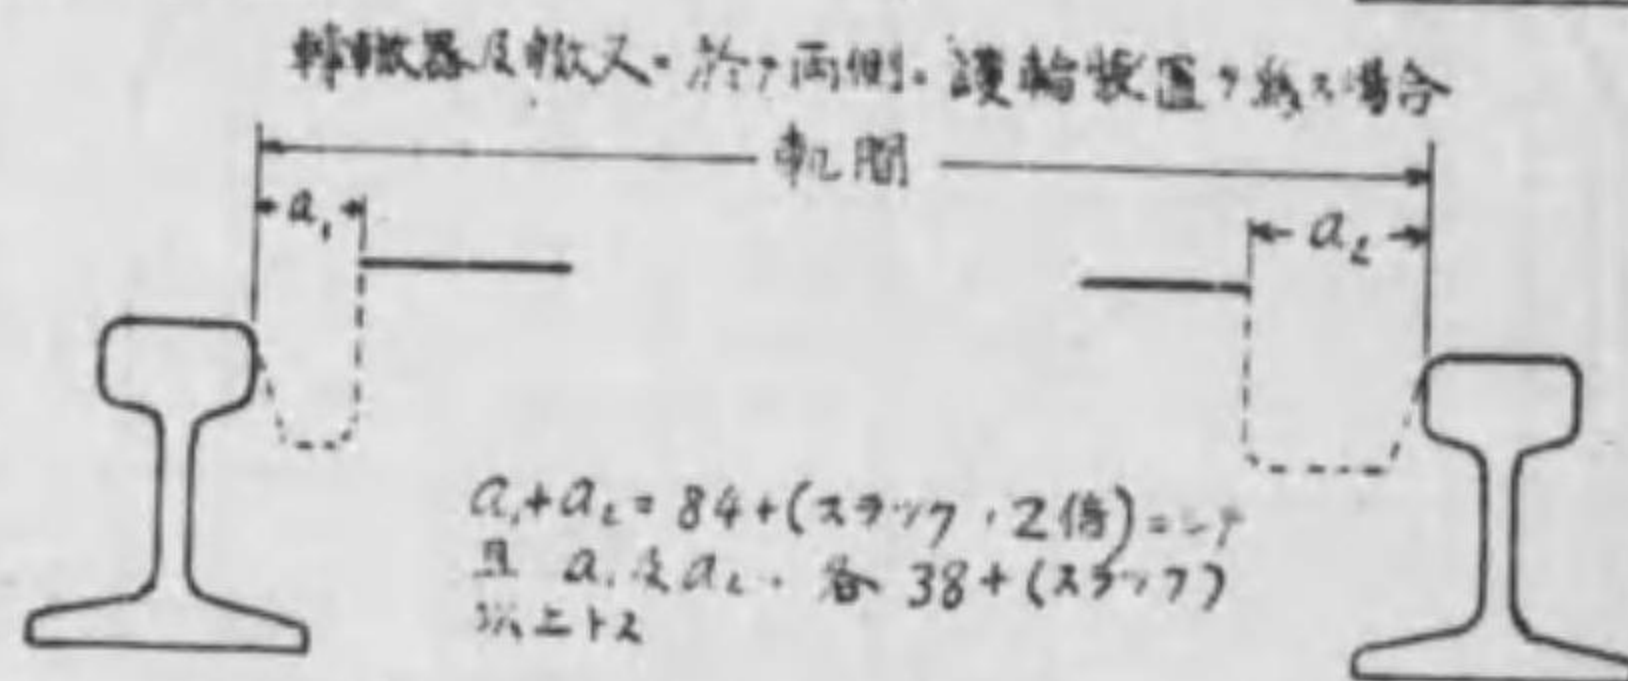 轉轍器及轍叉ニ於テ両側ニ護輪装置ヲ為ス場合
軌間
a₁
a₂
a₁+a₂=84+(スラックノ2倍)=シテ
且 a₁及a₂ハ各38+(スラック)
以上トス